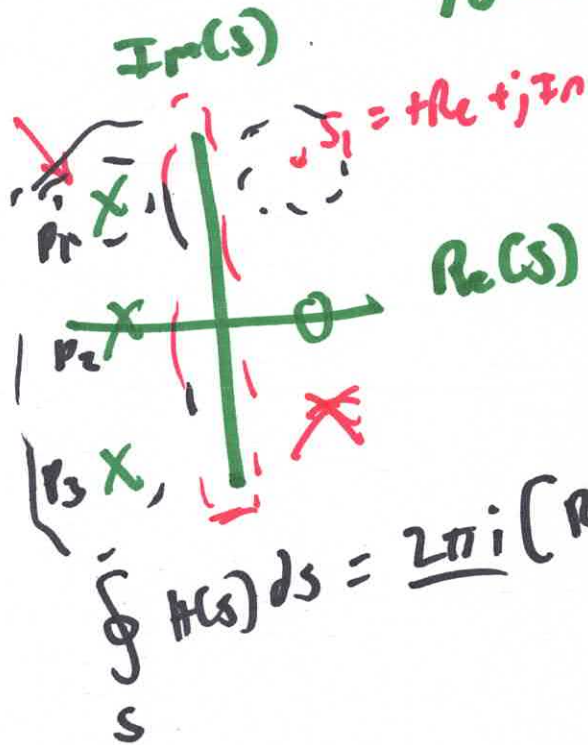 Im(s)
S₁ = +Re + j Im
P₁
Re(s)
P₂
P₃
∮ H(s) ds = 2πi (R
S